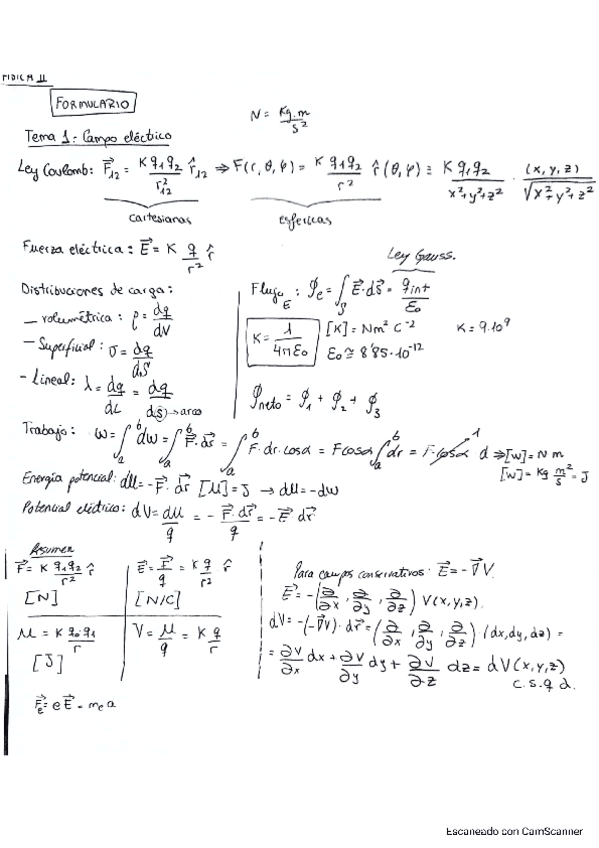 FISICA II
FORMULARIO
N = Kg·m / s²
Tema 1: Campo eléctrico
Ley Coulomb: F⃗₁₂ = K q₁q₂ / r²₁₂ r̂₁₂ ⇒ F(r, θ, φ) = K q₁q₂ / r² r̂(θ, φ) ≡ K q₁q₂ / x²+y²+z² · (x, y, z) / √x²+y²+z²
cartesianas esféricas
Fuerza eléctrica: E⃗ = K q / r² r̂
Ley Gauss.
Distribuciones de carga:
— volumétrica: ρ = dq / dV
— Superficial: σ = dq / dS
- Lineal: λ = dq / dL = dq / d(S) → arco
Flujo E: φₑ = ∫_S E⃗·dS⃗ = q int / ε₀
K = 1 / 4πε₀ [K] = Nm² C⁻² K = 9·10⁹
ε₀ ≅ 8'85·10⁻¹²
φneto = φ₁ + φ₂ + φ₃
Trabajo: W = ∫ₐᵇ dW = ∫ₐᵇ F⃗·dr⃗ = ∫ₐᵇ F·dr·cosα = Fcosα ∫ₐᵇ dr = F·cosα 1 d ⇒ [W] = N m
[W] = Kg m² / s² = J
Energía potencial: dU = -F⃗·dr⃗ [U] = J → dU = -dW
Potencial eléctrico: dV = dU / q = - F⃗·dr⃗ / q = -E⃗ dr⃗
Resumen
F⃗ = K q₁q₂ / r² r̂
[N]
E⃗ = F⃗ / q = K q / r² r̂
[N/C]
U = K q₀q₁ / r
[J]
V = U / q = K q / r
F⃗ₑ = e E⃗ = mₑ a
Para campos conservativos: E⃗ = -∇⃗V.
E⃗ = -(∂/∂x, ∂/∂y, ∂/∂z) V(x,y,z).
dV = -(-∇⃗V)·dr⃗ = (∂/∂x, ∂/∂y, ∂/∂z)·(dx,dy,dz) =
= ∂V/∂x dx + ∂V/∂y dy + ∂V/∂z dz = dV(x,y,z)
c.s.q.d.
Escaneado con CamScanner